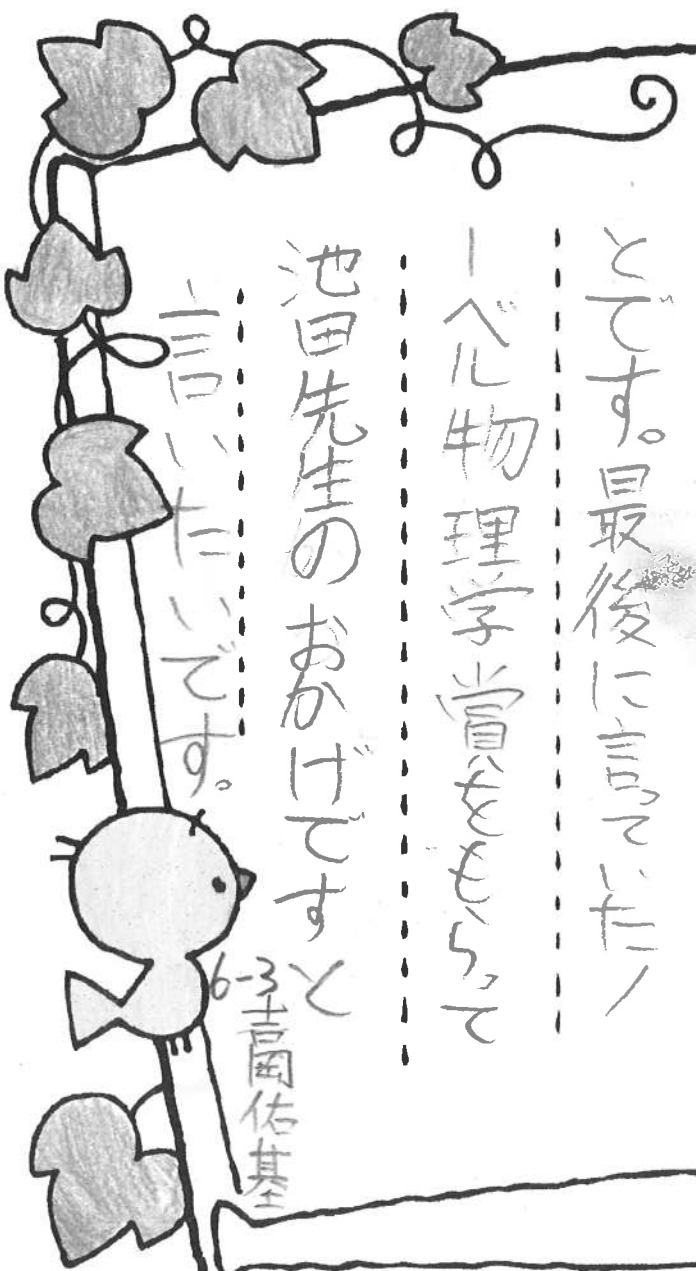 とです。最後に言っていたノ
ーベル物理学賞をもらって
池田先生のおかげですと
言いたいです。
6-3吉岡佑基